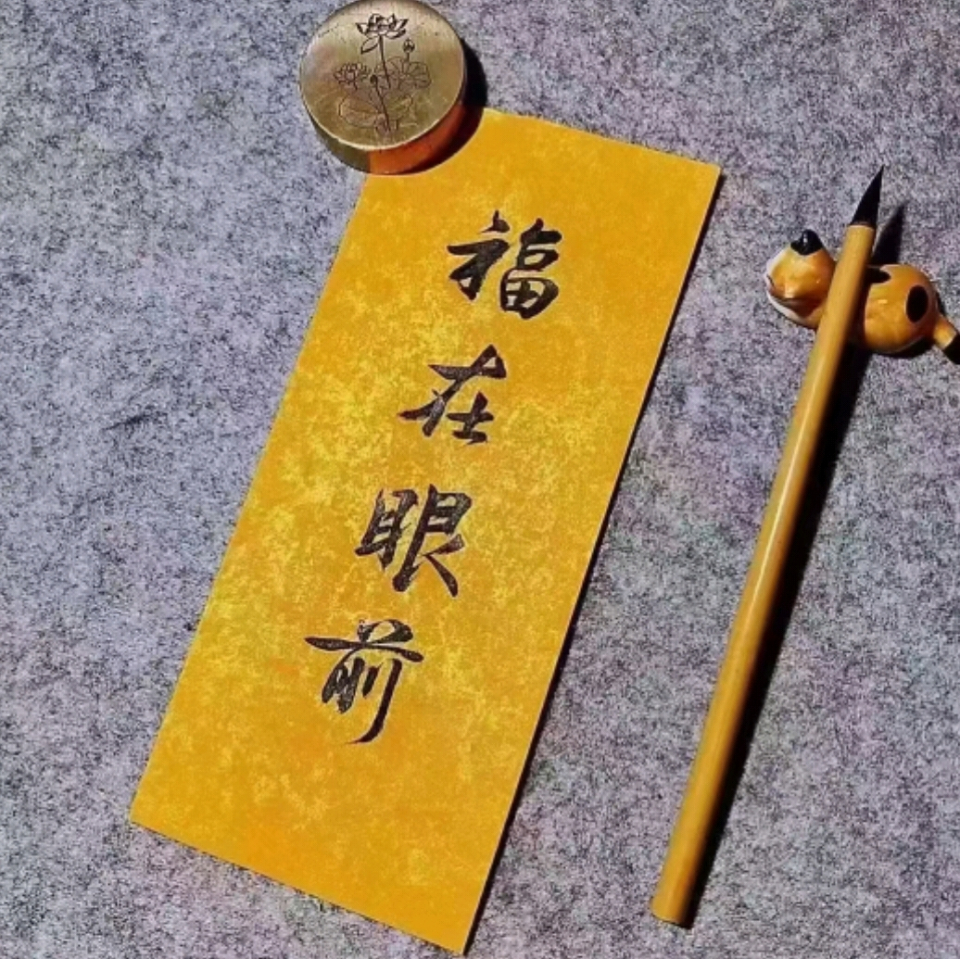 福在眼前